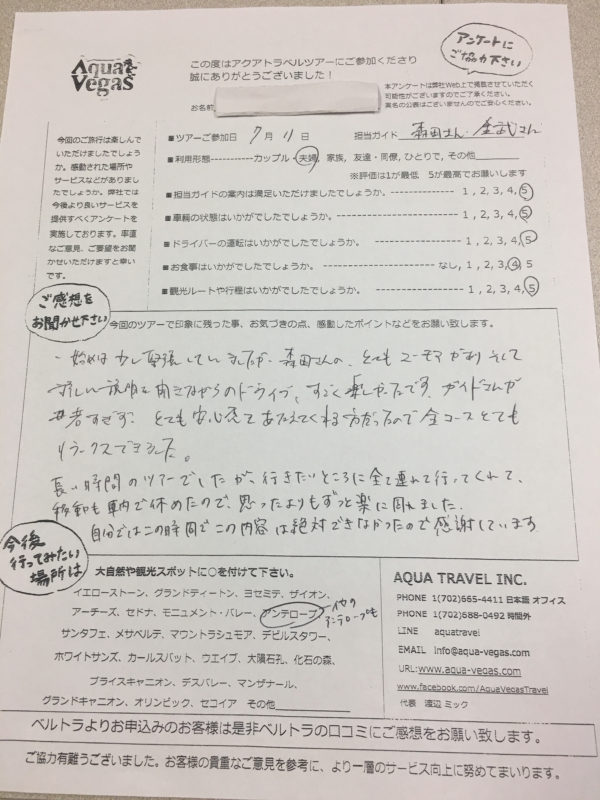 Aqua
Vegas
この度はアクアトラベルツアーにご参加くださり
誠にありがとうございました！
アンケートに
ご協力下さい
お名前
本アンケートは弊社Web上で掲載させていただく
可能性がございますのでご了承ください。
実名の公表はございませんのでご安心ください。
今回のご旅行は楽しんで
いただけましたでしょう
か。感動された場所や
サービスなどがありまし
たでしょうか。弊社では
今後より良いサービスを
提供すべくアンケートを
実施しております。率直
なご意見、ご要望をお聞
かせいただけますと幸い
です。
■ツアーご参加日 7月11日 担当ガイド 森田さん・金武さん
■利用形態-----------カップル・夫婦、家族, 友達・同僚, ひとりで, その他
※評価は1が最低 5が最高でお願いします
■担当ガイドの案内は満足いただけましたでしょうか。 1, 2, 3, 4, 5
■車輌の状態はいかがでしたでしょうか。 1, 2, 3, 4, 5
■ドライバーの運転はいかがでしたでしょうか。 1, 2, 3, 4, 5
■お食事はいかがでしたでしょうか。 なし, 1, 2, 3, 4, 5
■観光ルートや行程はいかがでしたでしょうか。 1, 2, 3, 4, 5
ご感想を
お聞かせ下さい
今回のツアーで印象に残った事、お気づきの点、感動したポイントなどをお願い致します。
始めは少し緊張していましたが、森田さんの、とてもユーモアがありそして
詳しい説明を聞きながらのドライブ、すごく楽しかったです。ガイドさんが
若すぎず、とても安心感をあたえてくれる方だったので全コースとても
リラックスできました。
長い時間のツアーでしたが、行きたいところに全て連れて行ってくれて、
移動も車内で休めたので、思ったよりもずっと楽に回れました。
自分ではこの時間でこの内容は絶対できなかったので感謝しています
今後
行ってみたい
場所は
大自然や観光スポットに○を付けて下さい。
イエローストーン、グランドティートン、ヨセミテ、ザイオン、
アーチーズ、セドナ、モニュメント・バレー、アンテロープ、他の
アンテロープも
サンタフェ、メサベルデ、マウントラシュモア、デビルスタワー、
ホワイトサンズ、カールスバット、ウエイブ、大隕石孔、化石の森、
ブライスキャニオン、デスバレー、マンザナール、
グランドキャニオン、オリンピック、セコイア その他
AQUA TRAVEL INC.
PHONE 1(702)665-4411 日本語 オフィス
PHONE 1(702)688-0492 時間外
LINE aquatravel
EMAIL info@aqua-vegas.com
URL:www.aqua-vegas.com
www.facebook.com/AquaVegasTravel
代表 渡辺 ミック
ベルトラよりお申込みのお客様は是非ベルトラの口コミにご感想をお願い致します。
ご協力有難うございました。お客様の貴重なご意見を参考に、より一層のサービス向上に努めてまいります。